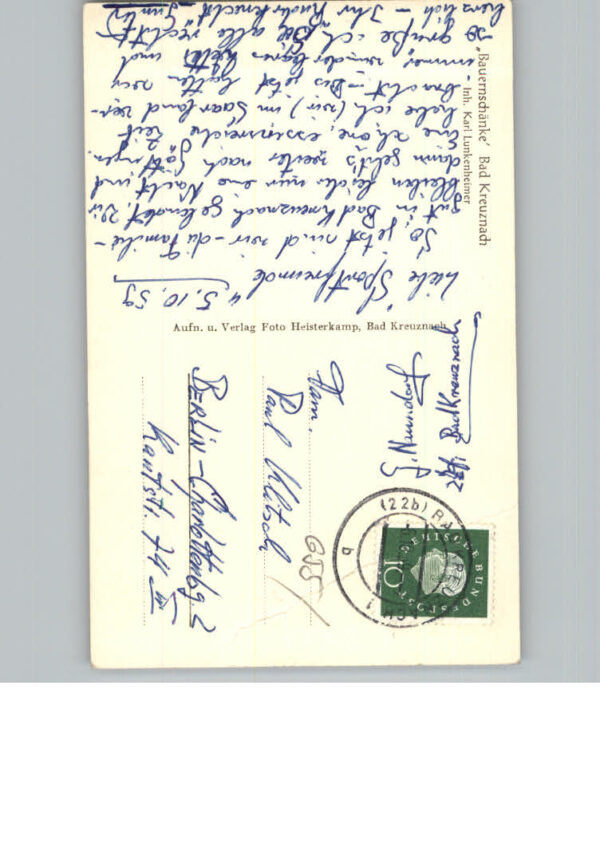 "Bauernschänke' Bad Kreuznach
Inh. Karl Lunkenheimer
4.5.10.59
Liebe Sportfreunde
So, jetzt sind wir - die Familie -
gut in Bad Kreuznach gelandet. Wir
bleiben leider nur eine Nacht und
dann geht's weiter nach Göttingen.
Eine schöne, essensreiche Zeit
habe ich (wir) im Saarland ver-
bracht. - Bis jetzt hatten wir
immer wunderbares Wetter und
so grüße ich Sie alle recht
herzlich - Ihr
Aufn. u. Verlag Foto Heisterkamp, Bad Kreuznach
G. Neundorf
zzt. Bad Kreuznach
Fam.
Paul Klitsch
BERLIN-Charlottenbg 2
Kantstr. 74 III
(22b) BAD KREUZNACH 1
q
DEUTSCHE BUNDESPOST
10